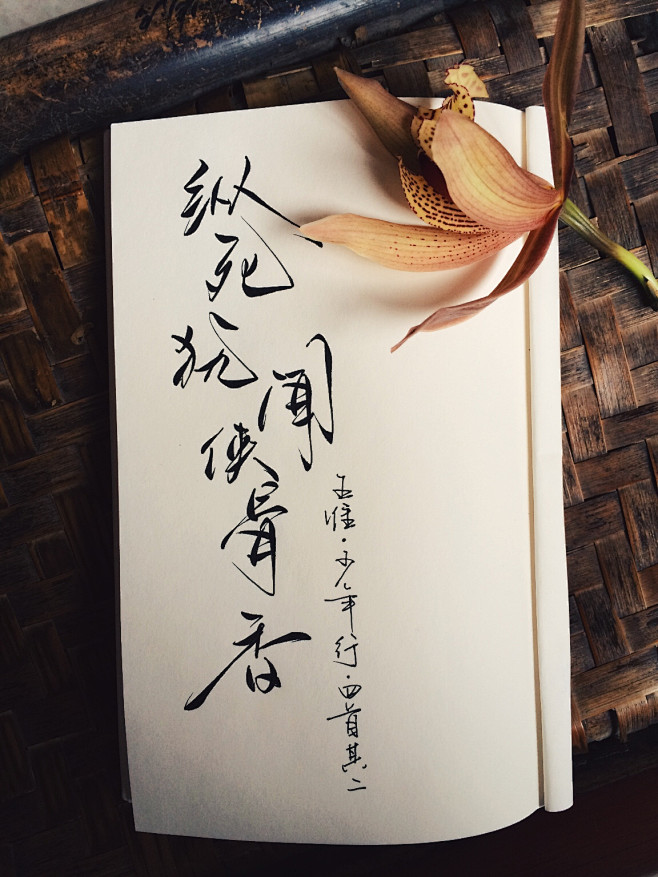 纵死犹闻侠骨香
王维·少年行·四首其二